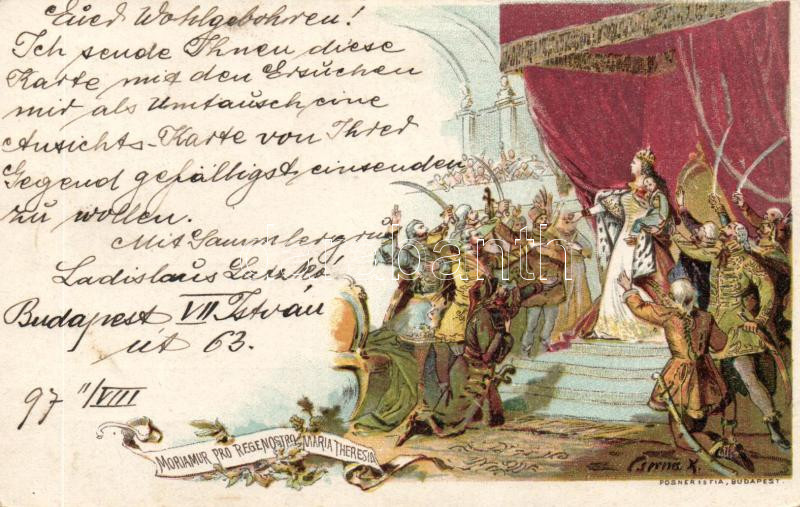 Euer Wohlgebohren!
Ich sende Ihnen diese
Karte mit den Ersuchen
mir als Umtausch eine
Ansichts-Karte von Ihrer
Gegend gefälligst einsenden
zu wollen.
Mit Sammlergruß
Ladislaus
Budapest VII István
út 63.
97 11/VIII
MORIAMUR PRO REGE NOSTRO MARIA THERESIA
POSNER ÉS FIA, BUDAPEST.